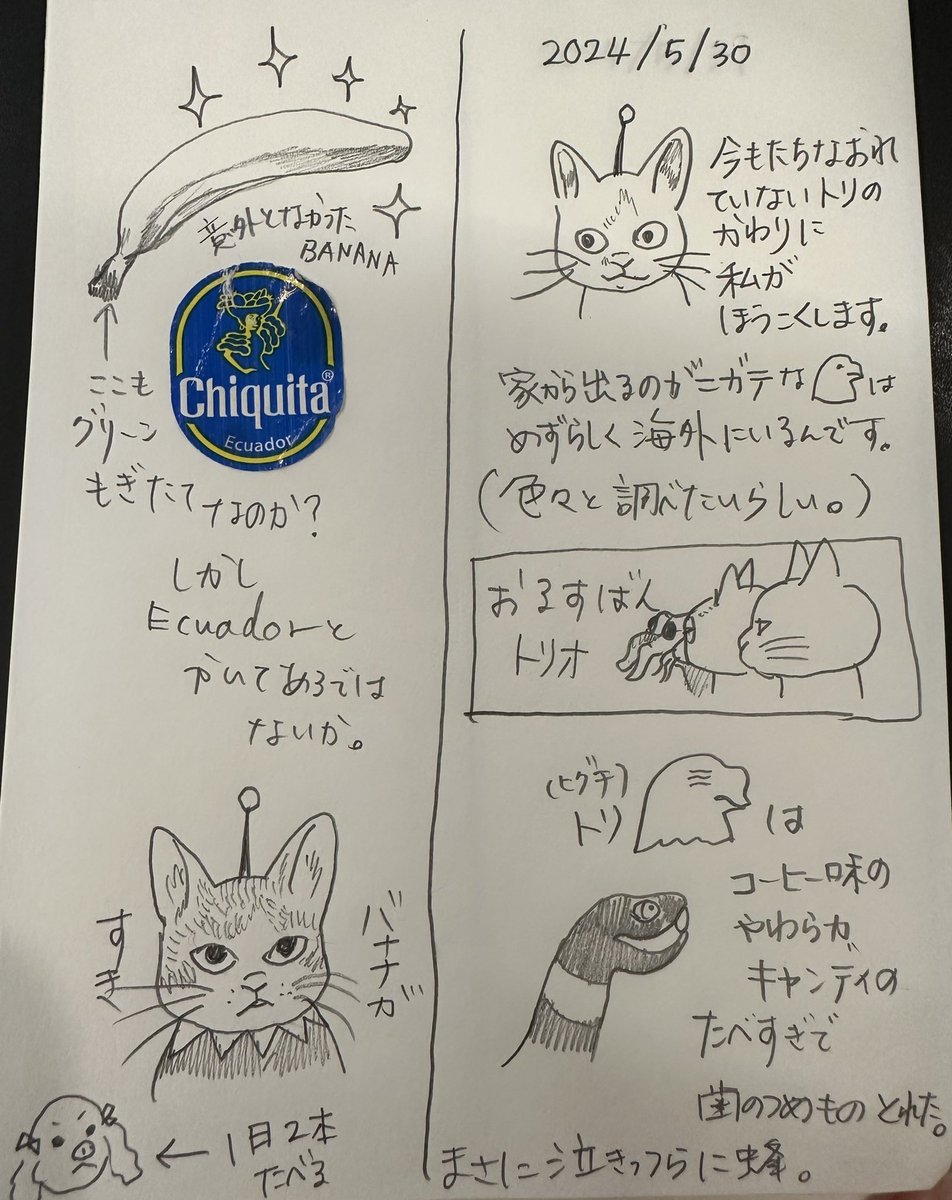 意外となかった
BANANA
Chiquita®
Ecuador
ここも
グリーン
もぎたてなのか?
しかし
Ecuadorと
かいてあるでは
ないか。
バナナが
すき
←1日2本
たべる
2024/5/30
今もたちなおれ
ていないトリの
かわりに
私が
ほうこくします。
家から出るのがニガテな は
めずらしく海外にいるんです。
(色々と調べたいらしい。)
おるすばん
トリオ
(ヒグチ)
トリ は
コーヒー味の
やわらか
キャンディの
たべすぎで
歯のつめものとれた。
まさに泣きっつらに蜂。